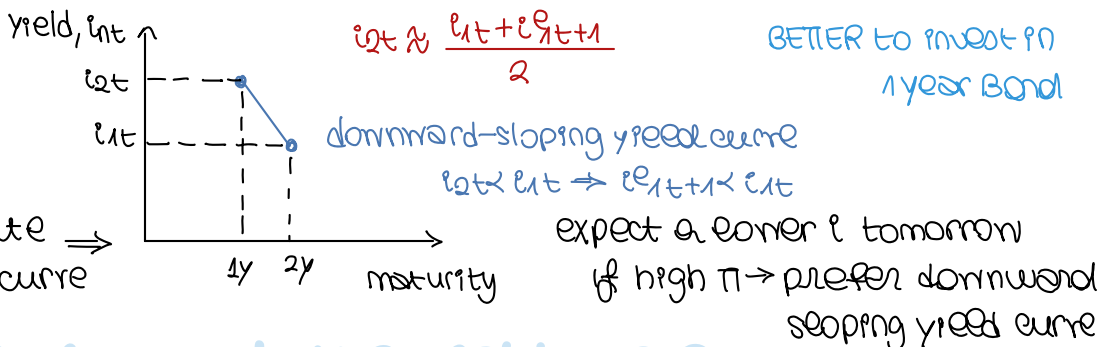 yield, int
i2t
i1t
1y 2y maturity
te ⇒
curve
i2t ≈ i1t + ie1t+1
2
BETTER to invest in
1 year Bond
downward-sloping yield curve
i2t < i1t ⇒ ie1t+1 < i1t
expect a lower i tomorrow
if high π → prefer downward
sloping yield curve